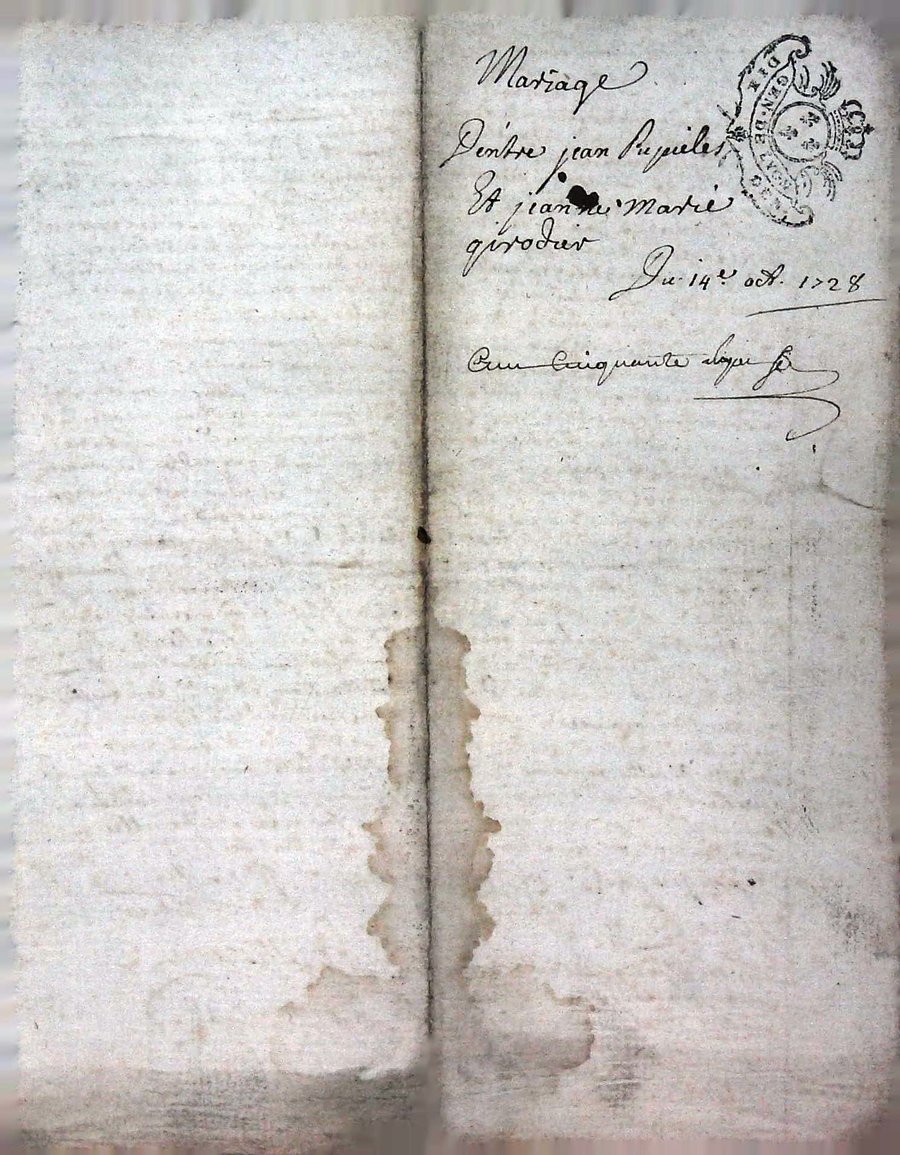 Mariage
D'entre jean Pupieles
Et jeanne Marie
girodier
Du 14e oct. 1728
Cinquante
GEN. DE